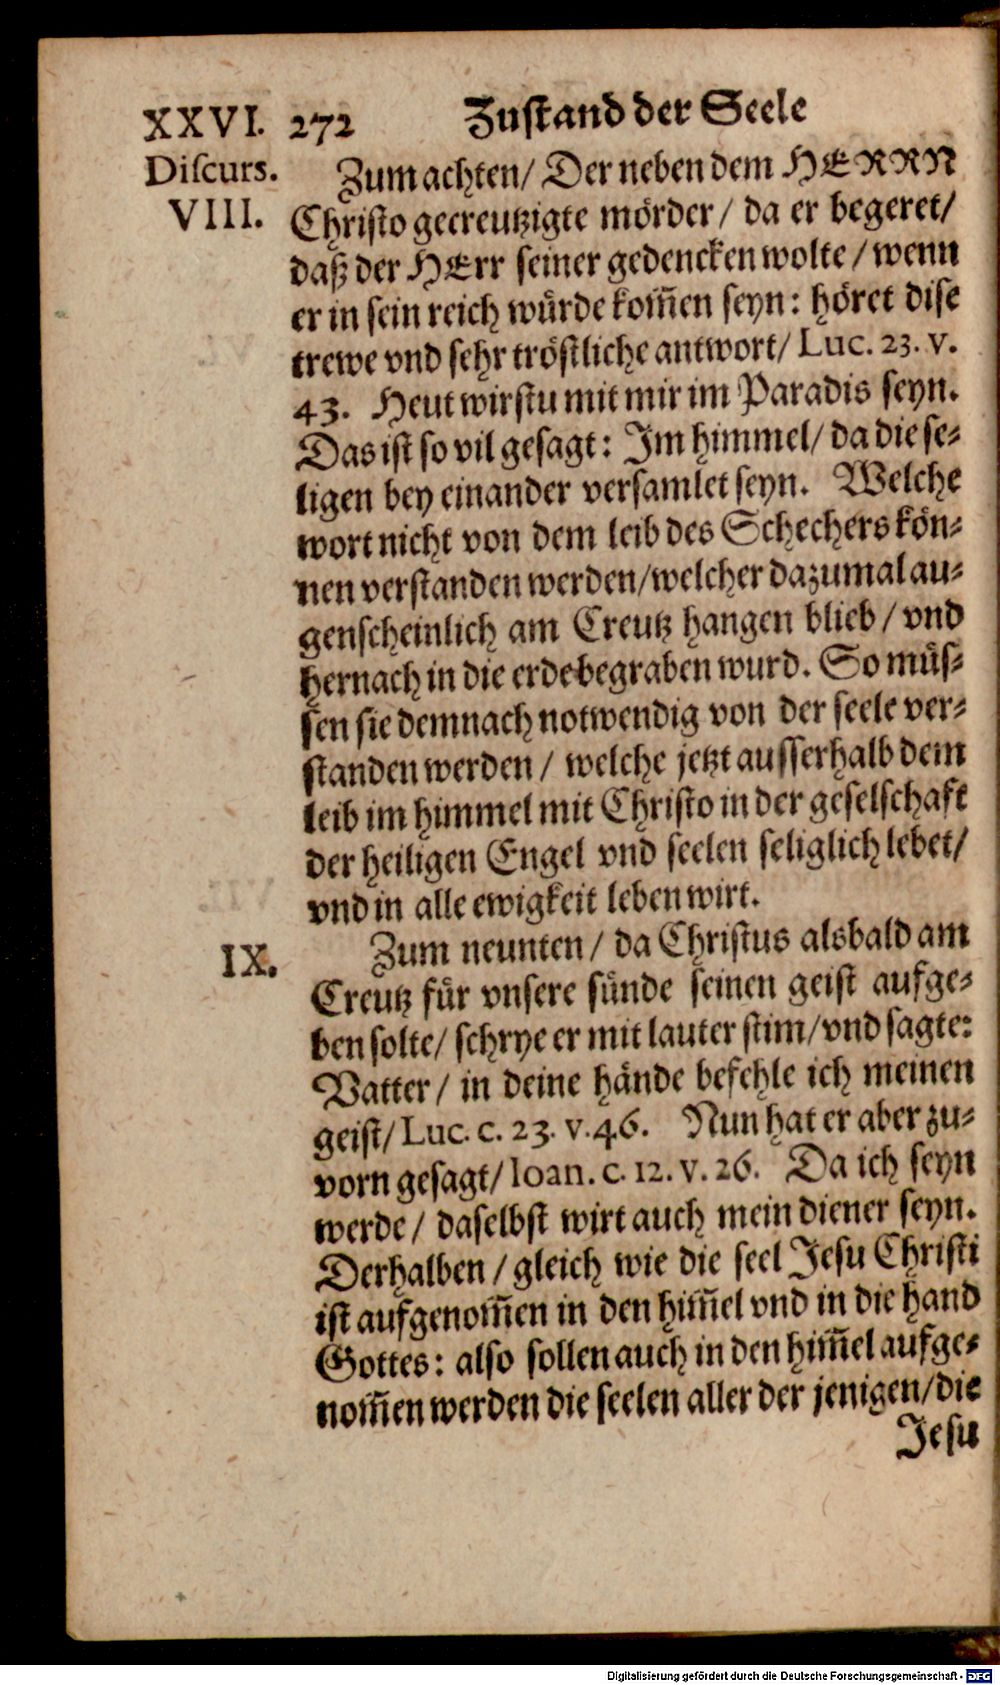 XXVI. 272 Zustand der Seele
Discurs.
VIII.
Zum achten/ Der neben dem HERRN
Christo gecreutzigte mörder/ da er begeret/
daß der HErr seiner gedencken wolte/ wenn
er in sein reich würde kom̃en seyn: höret dise
trewe vnd sehr tröstliche antwort/ Luc. 23. v.
43. Heut wirstu mit mir im Paradis seyn.
Das ist so vil gesagt: Im himmel/ da die se-
ligen bey einander versamlet seyn. Welche
wort nicht von dem leib des Schechers kön-
nen verstanden werden/ welcher dazumal au-
genscheinlich am Creutz hangen blieb/ vnd
hernach in die erde begraben wurd. So müs-
sen sie demnach notwendig von der seele ver-
standen werden/ welche jetzt ausserhalb dem
leib im himmel mit Christo in der geselschaft
der heiligen Engel vnd seelen seliglich lebet/
vnd in alle ewigkeit leben wirt.
IX.
Zum neunten/ da Christus alsbald am
Creutz für vnsere sünde seinen geist aufge-
ben solte/ schrye er mit lauter stim/ vnd sagte:
Vatter/ in deine hände befehle ich meinen
geist/ Luc. c. 23. v. 46. Nun hat er aber zu-
vorn gesagt/ Ioan. c. 12. v. 26. Da ich seyn
werde/ daselbst wirt auch mein diener seyn.
Derhalben/ gleich wie die seel Jesu Christi
ist aufgenom̃en in den him̃el vnd in die hand
Gottes: also sollen auch in den him̃el aufge-
nom̃en werden die seelen aller der jenigen/ die
Jesu
Digitalisierung gefördert durch die Deutsche Forschungsgemeinschaft - DFG